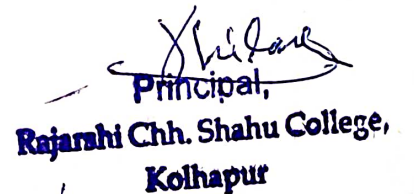 Principal,
Rajarshi Chh. Shahu College,
Kolhapur